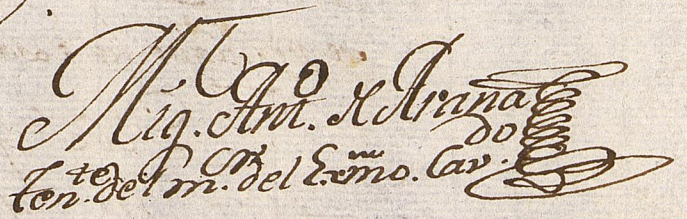 M.go
Mig. Ant.o de Arana
Ten.te del m.ro del Exmo. Cav.do